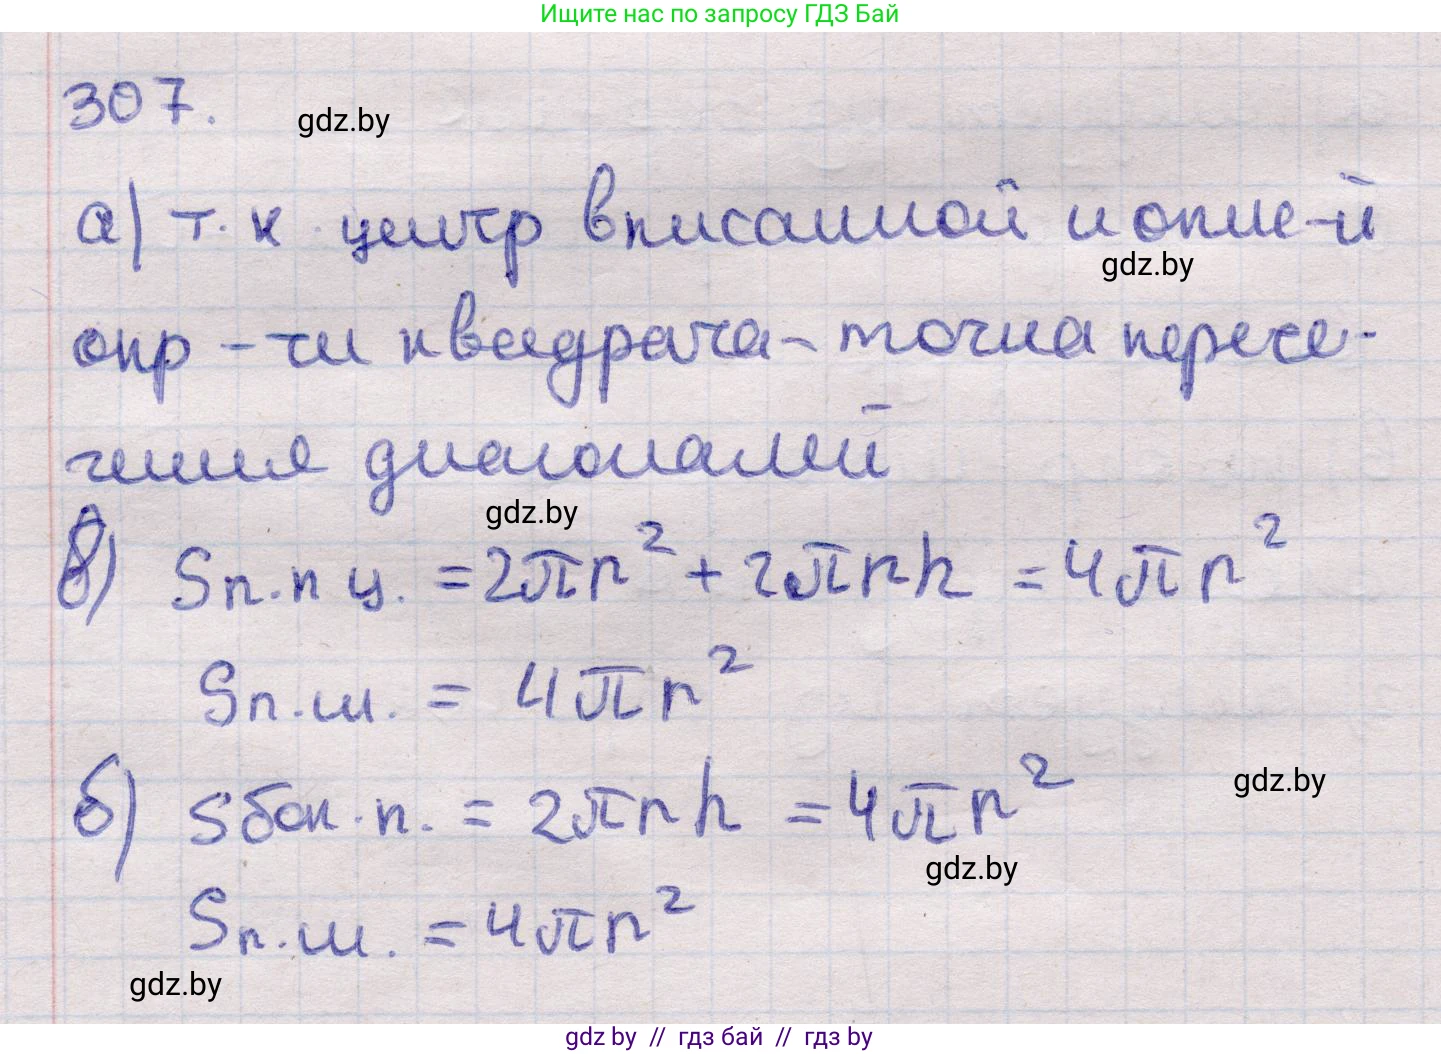 Ищите нас по запросу ГДЗ Бай
307.
gdz.by
а) т. к. центр вписанной и опис-й
gdz.by
окр-ти квадрата - точка пересе-
чения диагоналей
gdz.by
в) Sп.п ц. = 2πr² + 2πrh = 4πr²
Sп.ш. = 4πr²
б) Sбок.п. = 2πrh = 4πr²
gdz.by
gdz.by
Sп.ш. = 4πr²
gdz.by
gdz by // гдз бай // гдз by